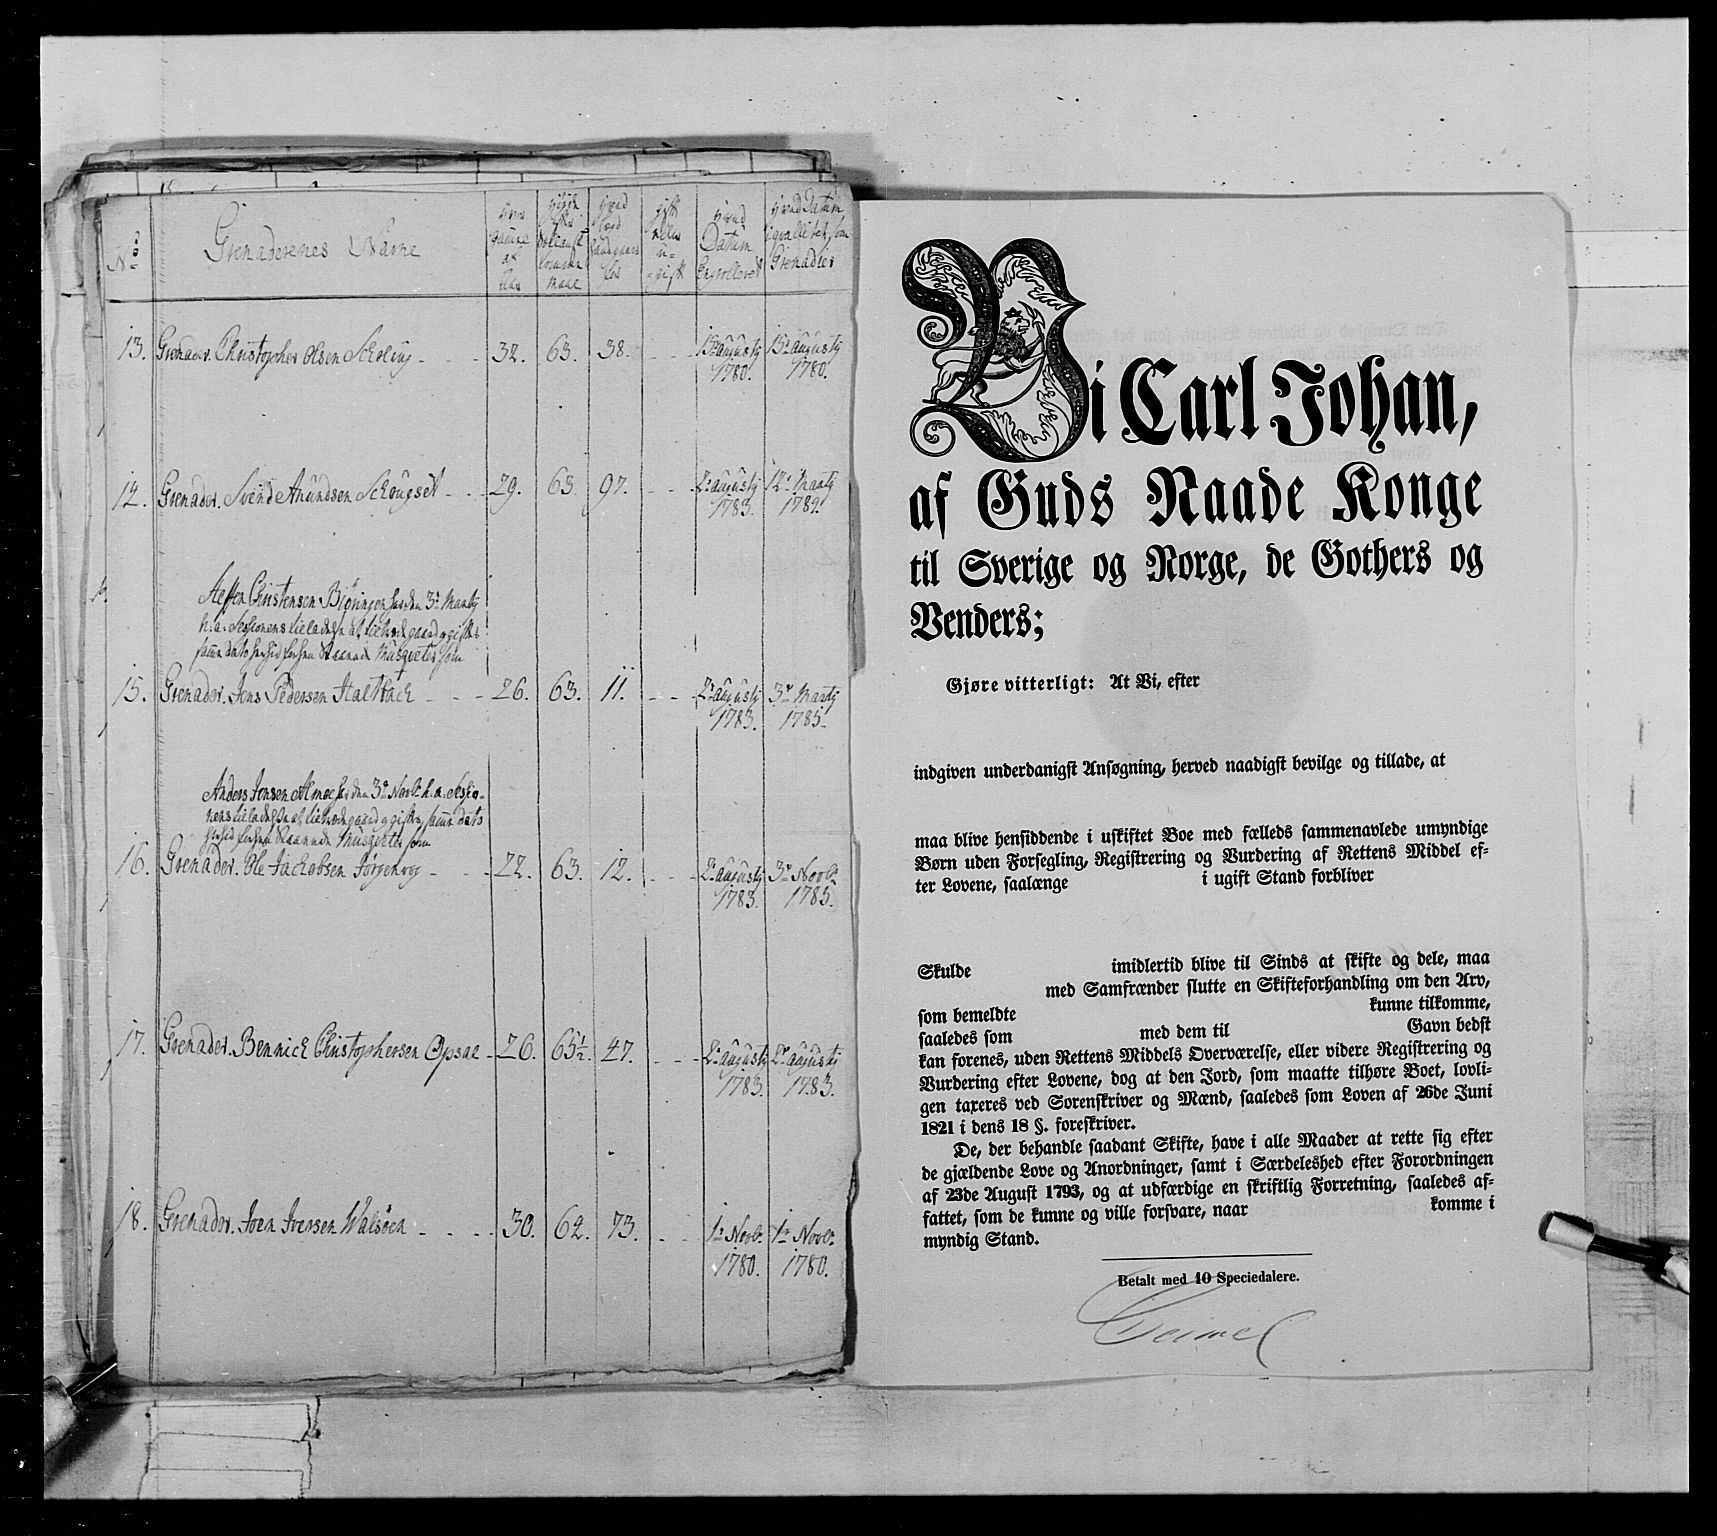 No
Grenaderenes Navne
hvad Datum Enrolleret
hvad Datum Grenadier
13. Grenader. Christopher Olsen 32. 63. 38. 15de augustj 1780. 15de augustj 1780.
14. Grenader. Svend Amundsen Schougset 29. 63. 97. 2de augustj 1783. 12te Martj
Christensen den 3de Martj
h. a. Sessionens
Musqueter som
15. Grenader. Jens Pedersen Haltbach 26. 63. 11. 2de augustj 1783. 3de Martj 1785.
Anders Jensen den 3de Novbr. h. a.
Musqueter som
16. Grenader. Ole Jackobsen 22. 63. 12. 2de augustj 1783. 3de Novbr. 1785.
17. Grenader. Bennich Christophersen Opsal 26. 63½. 47. 2de augustj 1783. 2de augustj 1783.
18. Grenader. Iver Iversen Walsöen 30. 62. 73. 1te Novbr. 1780. 1te Novbr. 1780.
Vi Carl Johan,
af Guds Naade Konge
til Sverige og Norge, de Gothers og
Venders;
Gjøre vitterligt: At Vi, efter
indgiven underdanigst Ansøgning, herved naadigst bevilge og tillade, at
maa blive hensiddende i uskiftet Boe med fælleds sammenavlede umyndige
Børn uden Forsegling, Registrering og Vurdering af Rettens Middel ef-
ter Lovene, saalænge i ugift Stand forbliver
Skulde imidlertid blive til Sinds at skifte og dele, maa
med Samfrænder slutte en Skifteforhandling om den Arv,
som bemeldte kunne tilkomme,
saaledes som med dem til Gavn bedst
kan forenes, uden Rettens Middels Overværelse, eller videre Registrering og
Vurdering efter Lovene, dog at den Jord, som maatte tilhøre Boet, lovli-
gen taxeres ved Sorenskriver og Mænd, saaledes som Loven af 26de Juni
1821 i dens 18 §. foreskriver.
De, der behandle saadant Skifte, have i alle Maader at rette sig efter
de gjældende Love og Anordninger, samt i Særdeleshed efter Forordningen
af 23de August 1793, og at udfærdige en skriftlig Forretning, saaledes af-
fattet, som de kunne og ville forsvare, naar komme i
myndig Stand.
Betalt med 10 Speciedalere.